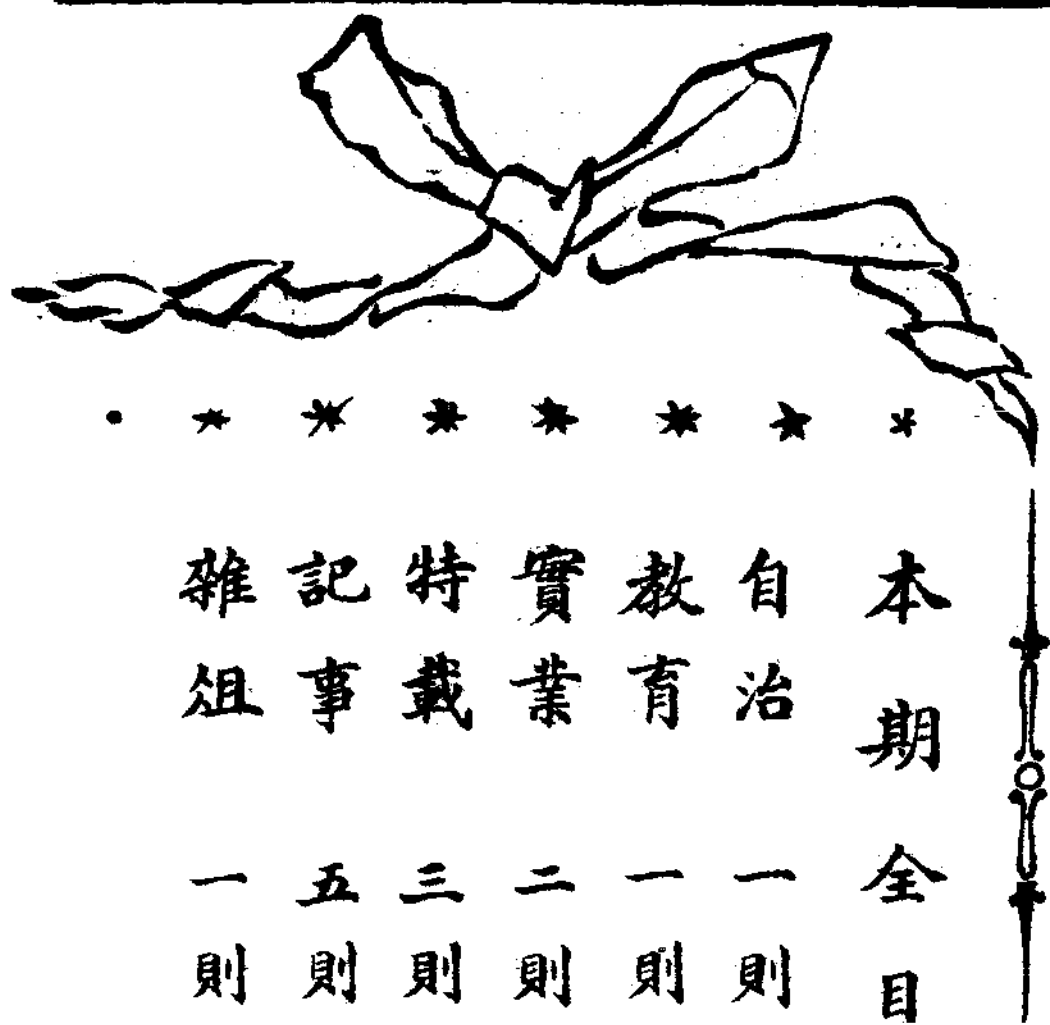 本期全目
自治 一則
教育 一則
實業 二則
特載 三則
記事 五則
雜俎 一則